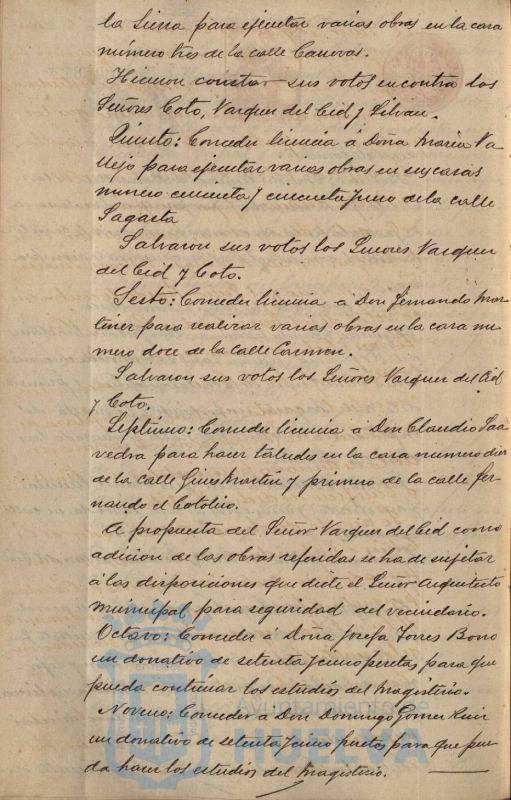 la Sierra para ejecutar varias obras en la casa
número tres de la calle Canovas.
Hicieron constar sus votos en contra los
Señores Coto, Vazquez del Cid y Silvan.
Quinto: Conceder licencia á Doña Maria Va-
llejo para ejecutar varias obras en sus casas
número cincuenta y cincuenta y uno de la calle
Sagasta
Salvaron sus votos los Señores Vazquez
del Cid y Coto.
Sesto: Conceder licencia á Don Fernando Mar-
tinez para realizar varias obras en la casa nu-
mero doce de la calle Carmen.
Salvaron sus votos los Señores Vazquez del Cid
y Coto.
Septimo: Conceder licencia á Don Claudio Saa-
vedra para hacer taludes en la casa numero diez
de la calle Gines Martin y primero de la calle Fer-
nando el Catolico.
A propuesta del Señor Vazquez del Cid como
adicion de las obras referidas se ha de sujetar
á las disposiciones que dicte el Señor Arquitecto
municipal para seguridad del vecindario.
Octavo: Conceder á Doña Josefa Torres Bono
un donativo de setenta y cinco pesetas para que
pueda continuar los estudios del Magisterio.
Noveno: Conceder á Don Domingo Gomez Ruiz
un donativo de setenta y cinco pesetas para que pue-
da hacer los estudios del Magisterio.
Ayuntamiento de
HUELVA